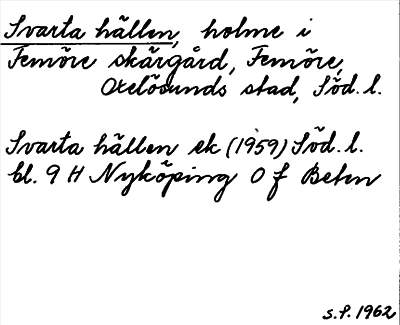 Svarta hällen, holme i
Femöre skärgård, Femöre,
Oxelösunds stad, Söd. l.
Svarta hällen ek (1959) Söd. l.
bl. 9 H Nyköping 0 f Beten
S.P. 1962